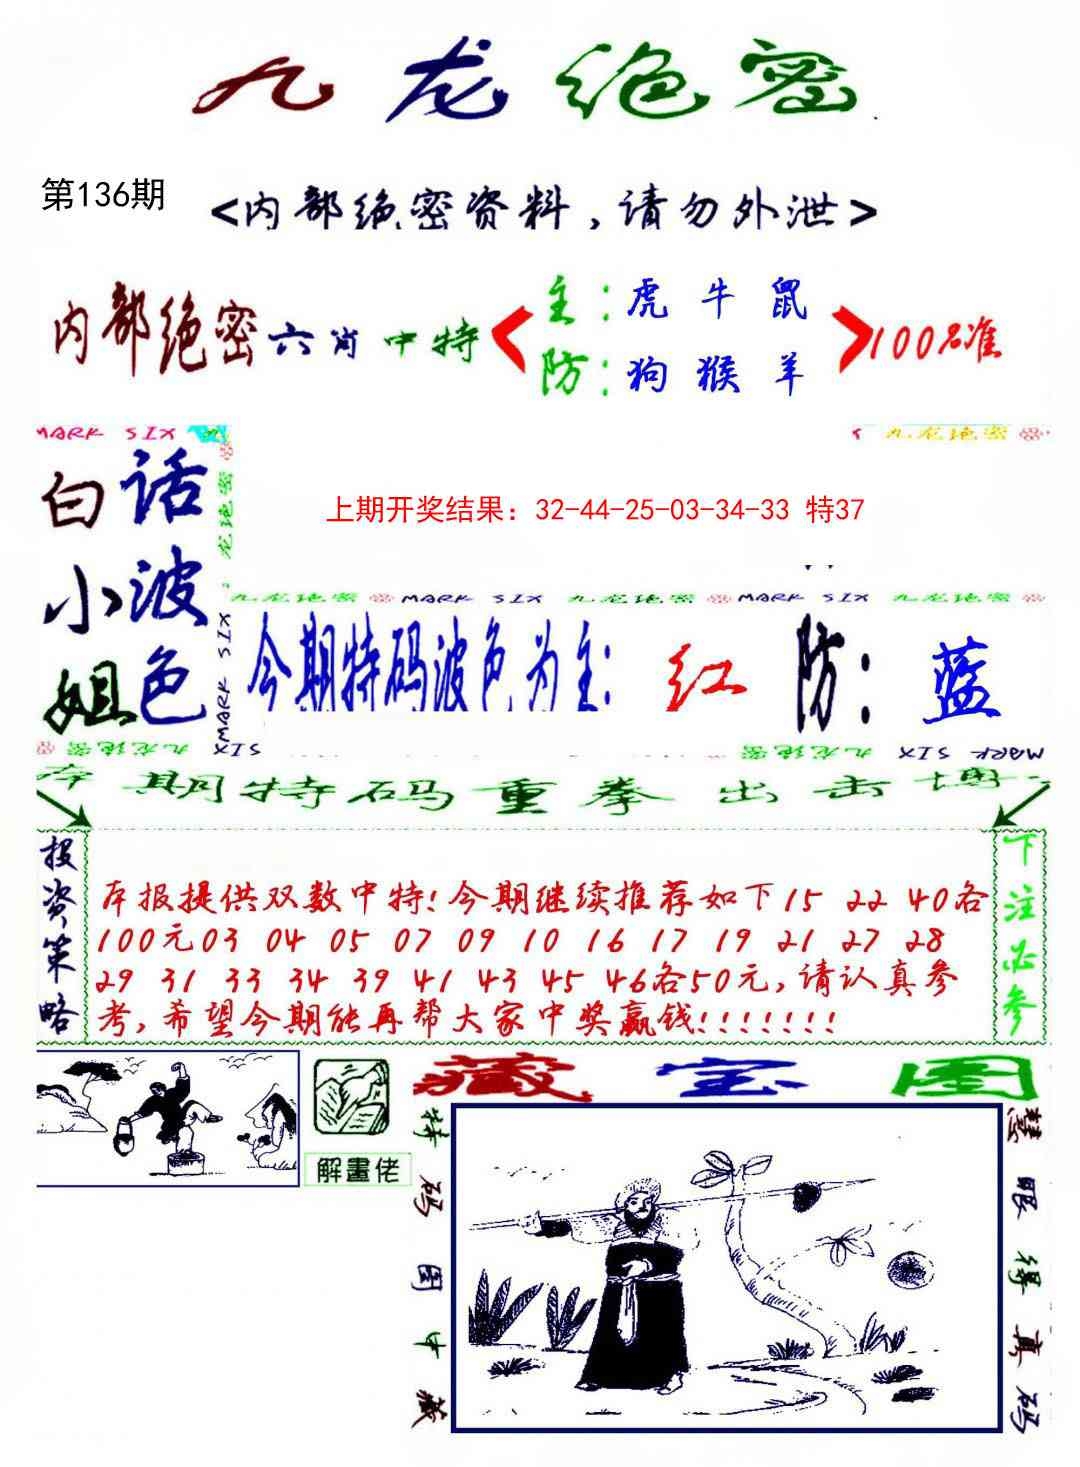 九龙绝密
第136期
<内部绝密资料,请勿外泄>
内部绝密六肖中特
主:虎 牛 鼠
防:狗 猴 羊
100%准
MARK SIX
九龙绝密
白话
小波
姐色
龙绝密
MARK SIX
上期开奖结果：32-44-25-03-34-33 特37
九龙绝密 MARK SIX 九龙绝密 MARK SIX 九龙绝密
今期特码波色为主: 红 防: 蓝
九龙绝密 MARK SIX
九龙绝密 MARK SIX
本期特码重拳出击博
投资策略
本报提供双数中特!今期继续推荐如下15 22 40各
100元03 04 05 07 09 10 16 17 19 21 27 28
29 31 33 34 39 41 43 45 46各50元,请认真参
考,希望今期能再帮大家中奖赢钱!!!!!!!
下注必参
解畫佬
藏宝图
特码图中藏
慧眼得真码